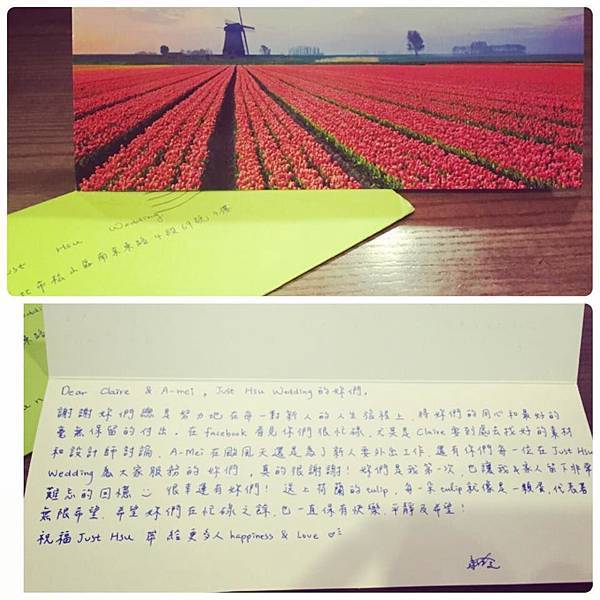 Just Hsu Wedding
北市松山區南京東路4段69號4樓
Dear Claire & A-mei, Just Hsu Wedding的妳們,
謝謝妳們總是努力地在每一對新人的人生旅程上,將妳們的用心和最好的
毫無保留的付出。在facebook看見你們很忙碌,尤其是Claire要到處去找好的素材
和設計師討論、A-Mei在颱風天還是為了新人要外出工作,還有你們每一位在Just Hsu
Wedding為大家服務的妳們,真的很謝謝!妳們是我第一次,也讓我與家人留下非常
難忘的回憶 很幸運有妳們!送上荷蘭的tulip,每一朵tulip就像是一顆蛋,代表著
無限希望,希望妳們在忙碌之餘,也一直保有快樂、平靜及希望!
祝福Just Hsu 帶給更多人happiness & Love